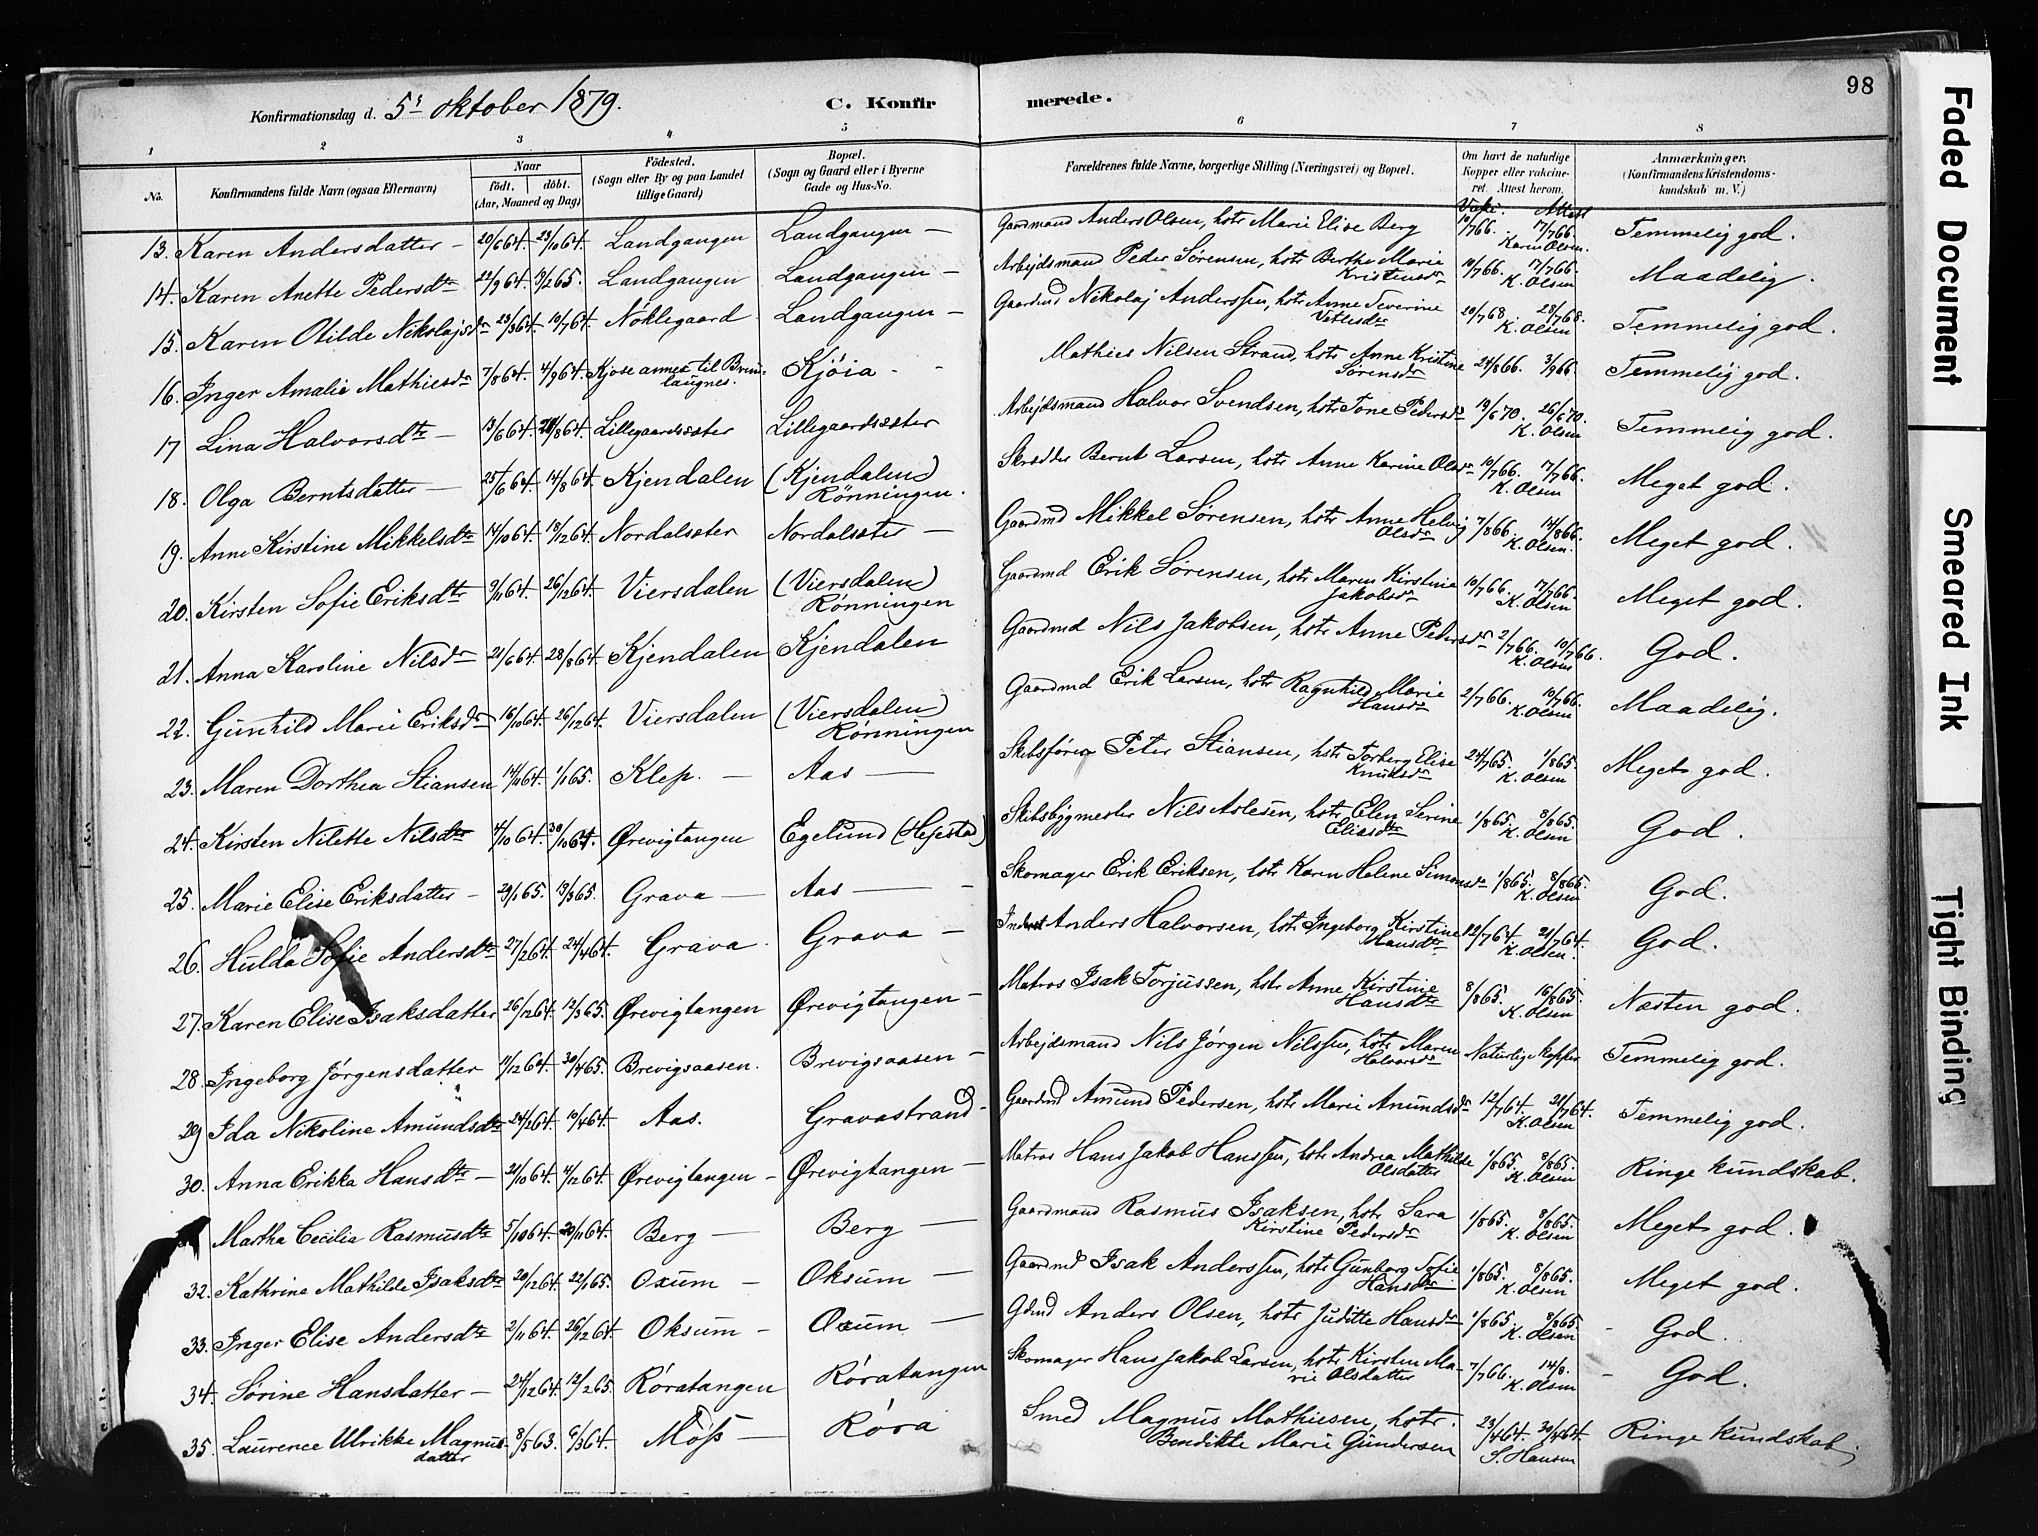 98
Konfirmationsdag d. 5s oktober 1879. C. Konfirmerede.
1 2 3 4 5 6 7 8
No. Konfirmandens fulde Navn (ogsaa Efternavn) Naar født. døbt. (Aar, Maaned og Dag) Födested. (Sogn eller By og paa Landet tillige Gaard) Bopæl. (Sogn og Gaard eller i Byerne Gade og Hus-No. Forældrenes fulde Navne, borgerlige Stilling (Næringsvei) og Bopæl. Om havt de naturlige Kopper eller vakcineret. Attest herom. Anmærkninger. (Konfirmandens Kristendomskundskab m. V.)
Vakc. Attest
13. Karen Andersdatter – 20/6 64. 23/10 64. Landgangen Landgangen – Gaardmand Anders Olsen, hstr Marie Elise Berg 10/7 66. 17/7 66. Karen Olsen. Temmelig god.
14. Karen Anette Pedersdtr 22/9 64. 9/2 65. Landgangen Landgangen – Arbejdsmand Peder Sørensen, hstr Berthe Marie Kristensdr 10/7 66. 17/7 66. K. Olsen Maadelig.
15. Karen Otilde Nikolajsdr 23/3 64. 10/7 64. Noklegaard Landgangen – Gaardmd Nikolaj Anderssen, hstr Anne Severine Vetlesdr 20/7 68. 28/7 68. K. Olsen Temmelig god.
16. Inger Amalie Mathiesdr 7/8 64. 4/9 64. Kjose annex til Brunlaugnes. Kjøia - - Mathies Nilsen Strand, hstr Anne Kristine Sørensdr 24/8 66. 3/9 66. Temmelig god.
17 Lina Halvorsdtr – 13/6 64. 28/8 64. Lillegaardsæter Lillegaardsæter Arbejdsmand Halvor Svendsen, hstr Tone Pedersdr 19/6 70. 26/6 70. K. Olsen Temmelig god.
18. Olga Berntsdatter – 25/6 64. 14/8 64. Kjendalen (Kjendalen) Rønningen. Skrædder Bernt Larsen, hstr Anne Karine Olsdr 10/7 66. 17/7 66. K. Olsen Meget god.
19. Anne Kirstine Mikkelsdtr 14/10 64. 18/12 64. Nordalsæter Nordalsæter – Gaardmd Mikkel Sørensen, hstr Anne Helvig Olsdr 7/8 66. 14/8 66. K. Olsen. Meget god.
20. Kirsten Sofie Eriksdtr 9/11 64. 26/12 64. Viersdalen (Viersdalen) Rønningen Gaardmd Erik Sørensen, hstr Maren Kirstine Jakobsdr 10/7 66. 17/7 66. K. Olsen Meget god.
21. Anna Karoline Nilsdr 21/6 64. 28/8 64. Kjendalen Kjendalen Gaardmd Nils Jakobsen, hstr Anne Pedersdr 2/7 66. 10/7 66. K. Olsen God.
22. Gunhild Marie Eriksdr 16/10 64. 26/12 64. Viersdalen (Viersdalen) Rønningen Gaardmd Erik Larsen, hstr Ragnhild Marie Hansdr 2/7 66. 10/7 66. K. Olsen Maadelig.
23. Maren Dorthea Stiansen 14/11 64. 1/1 65. Klep. – Aas – Skibsfører Peter Stiansen, hstr Torberg Elise Knudsdr 24/7 65. 1/8 65. K. Olsen Meget god.
24. Kirsten Nilette Nilsdtr 4/10 64. 30/10 64. Ørevigtangen Egelund (Hejsta) Skibsbygmester Nils Aslesen, hstr Elen Serine Eliasdtr 1/8 65. 8/8 65. K. Olsen God.
25. Marie Elise Eriksdatter – 29/1 65. 19/3 65. Grava – Aas – Skomager Erik Eriksen, hstr Karen Helene Simonsdr 1/8 65. 8/8 65. K. Olsen God.
26. Hulda Sofie Andersdtr 27/2 64. 24/4 64. Grava Grava – Inderst Anders Halvorsen, hstr Ingeborg Kirstine Hansdtr 12/7 64. 21/7 64. K. Olsen. God.
27. Karen Elise Isaksdatter 26/12 64. 12/3 65. Ørevigtangen Ørevigtangen – Matros Isak Torjussen, hstr Anne Kirstine Hansdtr 8/8 65. 16/8 65. K. Olsen Næsten god.
28. Ingeborg Jørgensdatter 11/12 64. 30/4 65. Brevigsaasen. Brevigsaasen – Arbejdsmand Nils Jørgen Nilssen, hstr Maren Halvorsdr Naturlige kopper Temmelig god.
29 Ida Nikoline Amundsdtr 24/2 64. 10/4 64. Aas. Gravastrand – Gaardmd Amund Pedersen, hstr Marie Anundsdr 12/7 64. 21/7 64. K. Olsen Temmelig god.
30. Anna Erikka Hansdtr – 21/10 64. 4/12 64. Ørevigtangen – Ørevigtangen – Matros Hans Jakob Hanssen, hstr Andrea Mathilde Olsdatter 1/8 65. 8/8 65. K. Olsen Ringe kundskab.
Martha Cecilia Rasmusdtr 5/10 64. 20/11 64. Berg – Berg – Gaardmand Rasmus Isaksen, hstr Sara Kirstine Pedersdr 1/8 65. 8/8 65. K. Olsen Meget god.
32. Kathrine Mathilde Isaksdtr 20/12 64. 22/1 65. Oxum – Oksum – Gaardmd Isak Anderssen, hstr Gunborg Sofie Hansdtr 1/8 65. 8/8 65. K. Olsen Meget god.
33. Inger Elise Andersdtr 2/11 64. 26/12 64. Oksum – Oxum – Gdmd Anders Olsen, hstr Juditte Hansdr 1/8 65. 8/8 65. K. Olsen – God.
34. Sørine Hansdatter – 24/12 64. 12/2 65. Røratangen Røratangen Skomager Hans Jakob Larsen, hstr Kirsten Marie Olsdatter 7/7 66. 14/8. K. Olsen – God.
35. Laurence Ulrikke Magnusdatter 8/5 63. 6/3 64. Moss – Røra Smed Magnus Mathiesen, hstr. Bendikte Marie Gundersen 23/4 64. 30/4 64. S. Hansen Ringe kundskab
Faded Document
Smeared Ink
Tight Binding